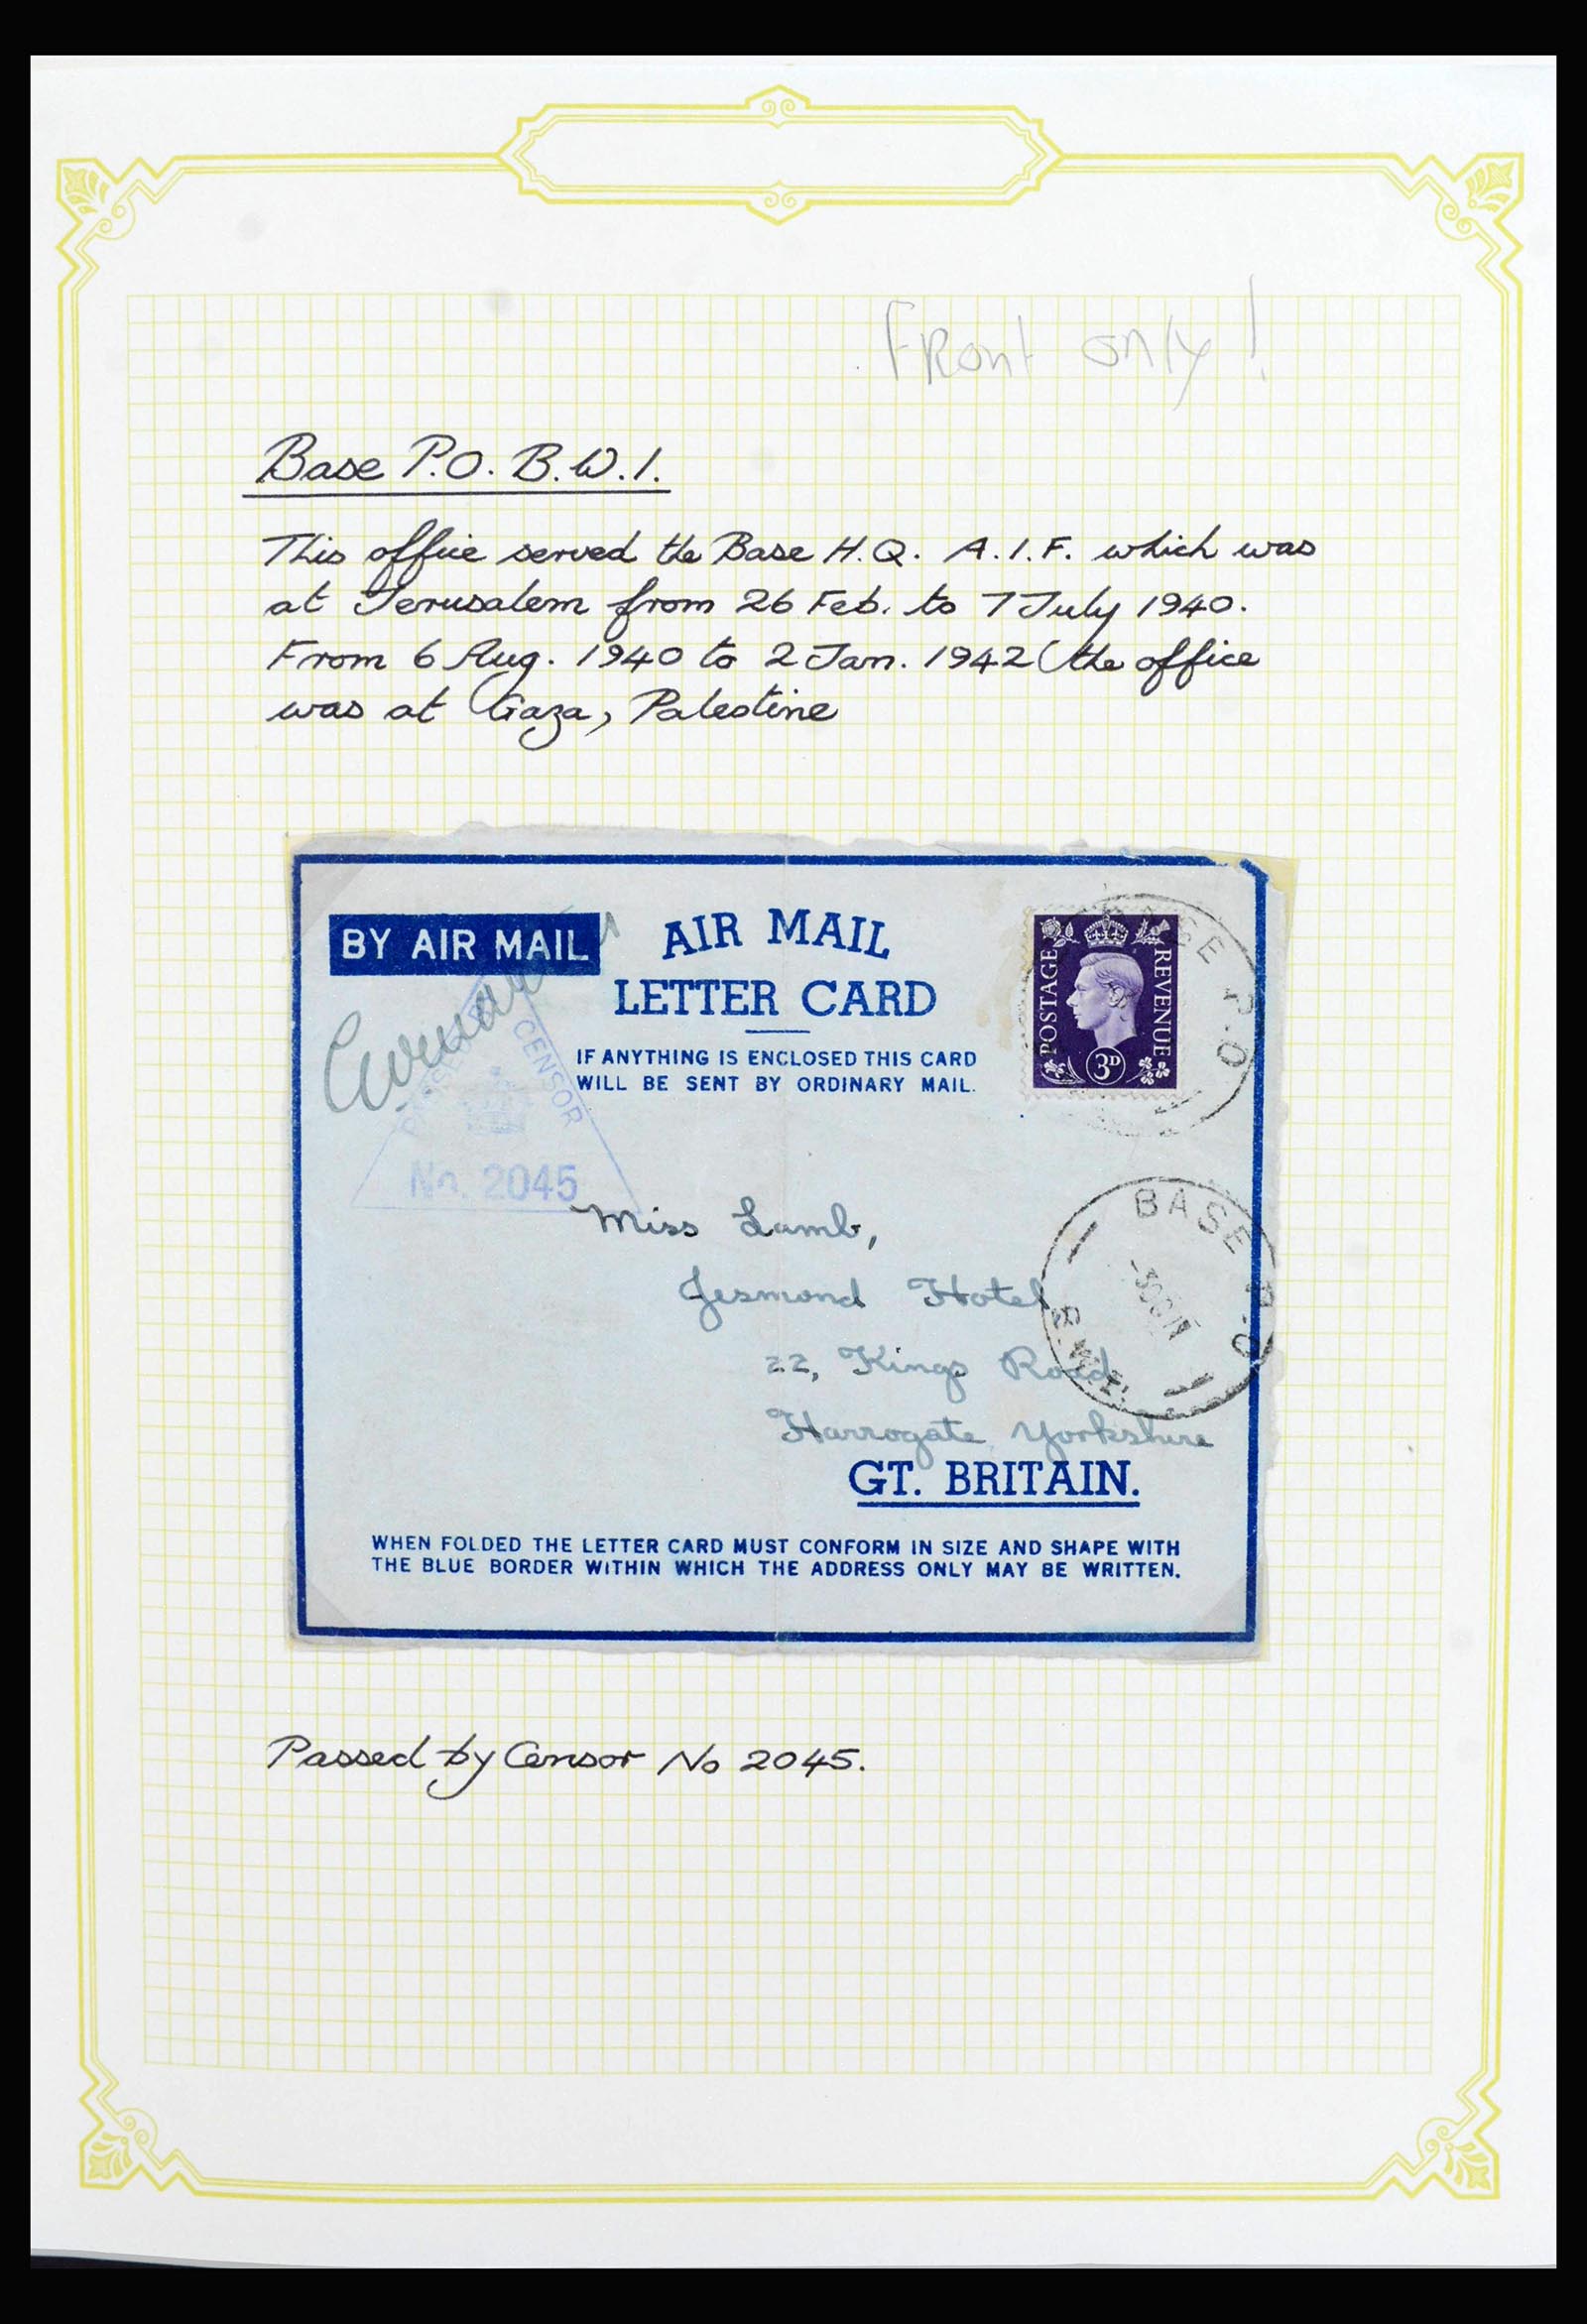 Front only!
Base P.O. B.W.1.
This office served the Base H.Q. A.I.F. which was
at Jerusalem from 26 Feb. to 7 July 1940.
From 6 Aug. 1940 to 2 Jan. 1942 (the office
was at Gaza, Palestine
BY AIR MAIL
AIR MAIL
LETTER CARD
IF ANYTHING IS ENCLOSED THIS CARD
WILL BE SENT BY ORDINARY MAIL.
POSTAGE
REVENUE
3D
BASE P.O
CENSOR
No. 2045
Miss Lamb,
Jesmond Hotel
22, Kings Road
Harrogate Yorkshire
GT. BRITAIN.
BASE P.O
B.W.I.
WHEN FOLDED THE LETTER CARD MUST CONFORM IN SIZE AND SHAPE WITH
THE BLUE BORDER WITHIN WHICH THE ADDRESS ONLY MAY BE WRITTEN.
Passed by Censor No 2045.